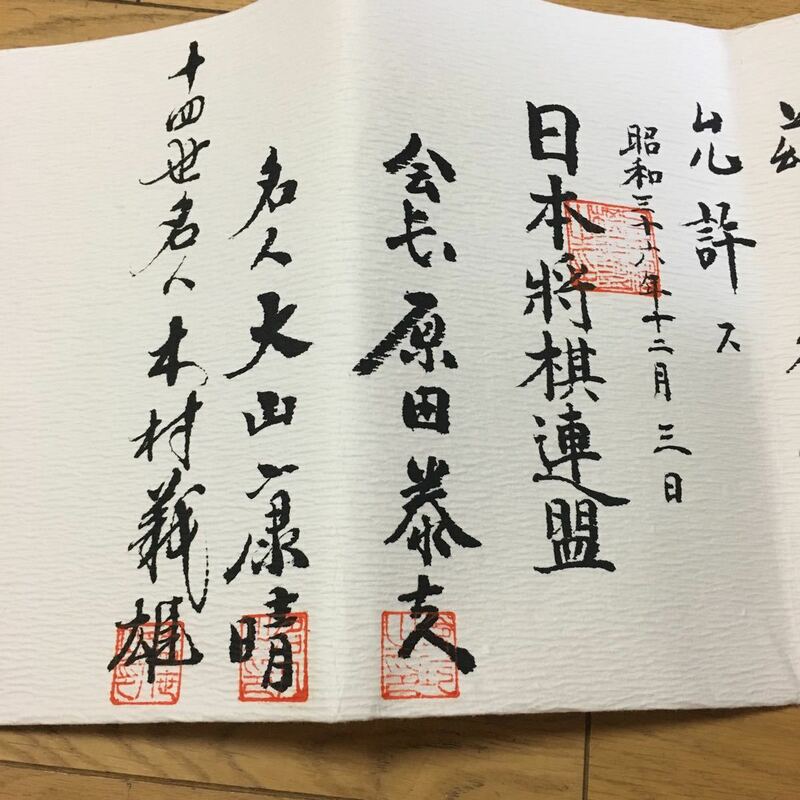 允許ス
昭和三十六年十二月三日
日本將棋連盟
会長 原田泰夫
名人 大山康晴
十四世名人 木村義雄